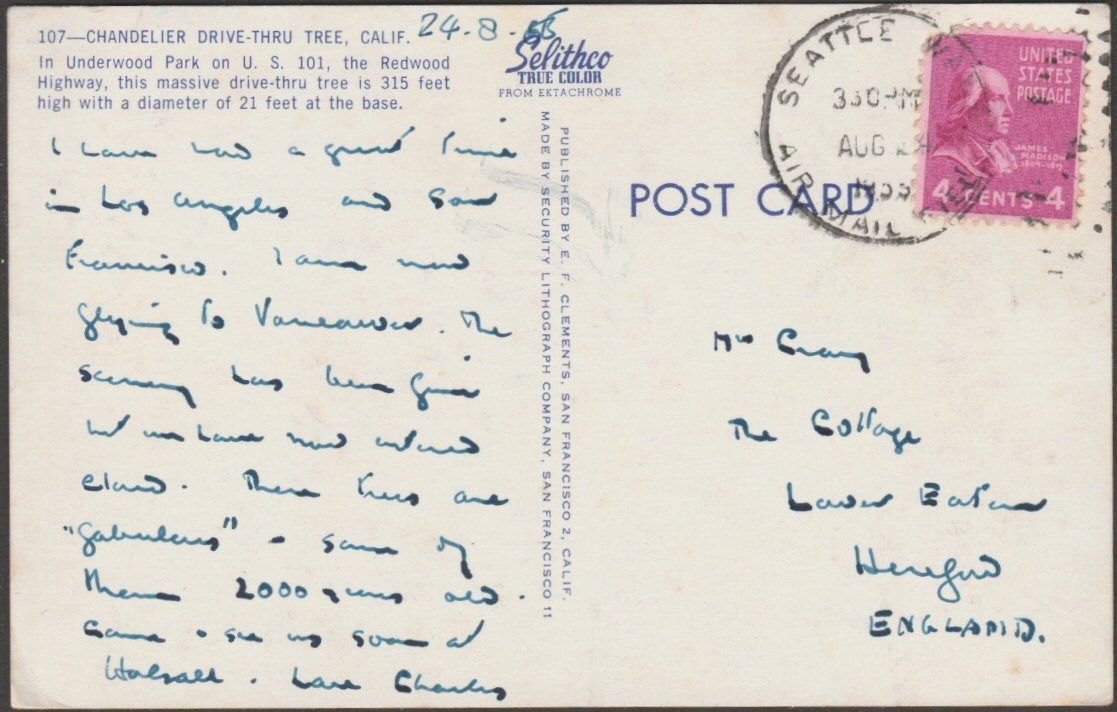 107—CHANDELIER DRIVE-THRU TREE, CALIF.
In Underwood Park on U. S. 101, the Redwood
Highway, this massive drive-thru tree is 315 feet
high with a diameter of 21 feet at the base.
24-8-55
Selithco
TRUE COLOR
FROM EKTACHROME
I have had a great time
in Los Angeles and San
Francisco. I am now
flying to Vancouver. The
scenery has been fine
but we have now entered
cloud. These trees are
"fabulous" - some of
them 2000 years old.
Come & see us soon at
Walsall. Love Charles
MADE BY SECURITY LITHOGRAPH COMPANY, SAN FRANCISCO 11
PUBLISHED BY E. F. CLEMENTS, SAN FRANCISCO 2, CALIF.
POST CARD
SEATTLE
330 PM
AUG 24
1955
AIR MAIL
UNITED
STATES
POSTAGE
JAMES
MADISON
1809-1817
4 CENTS 4
Mrs
The Cottage
Lower Eaton
Hereford
ENGLAND.